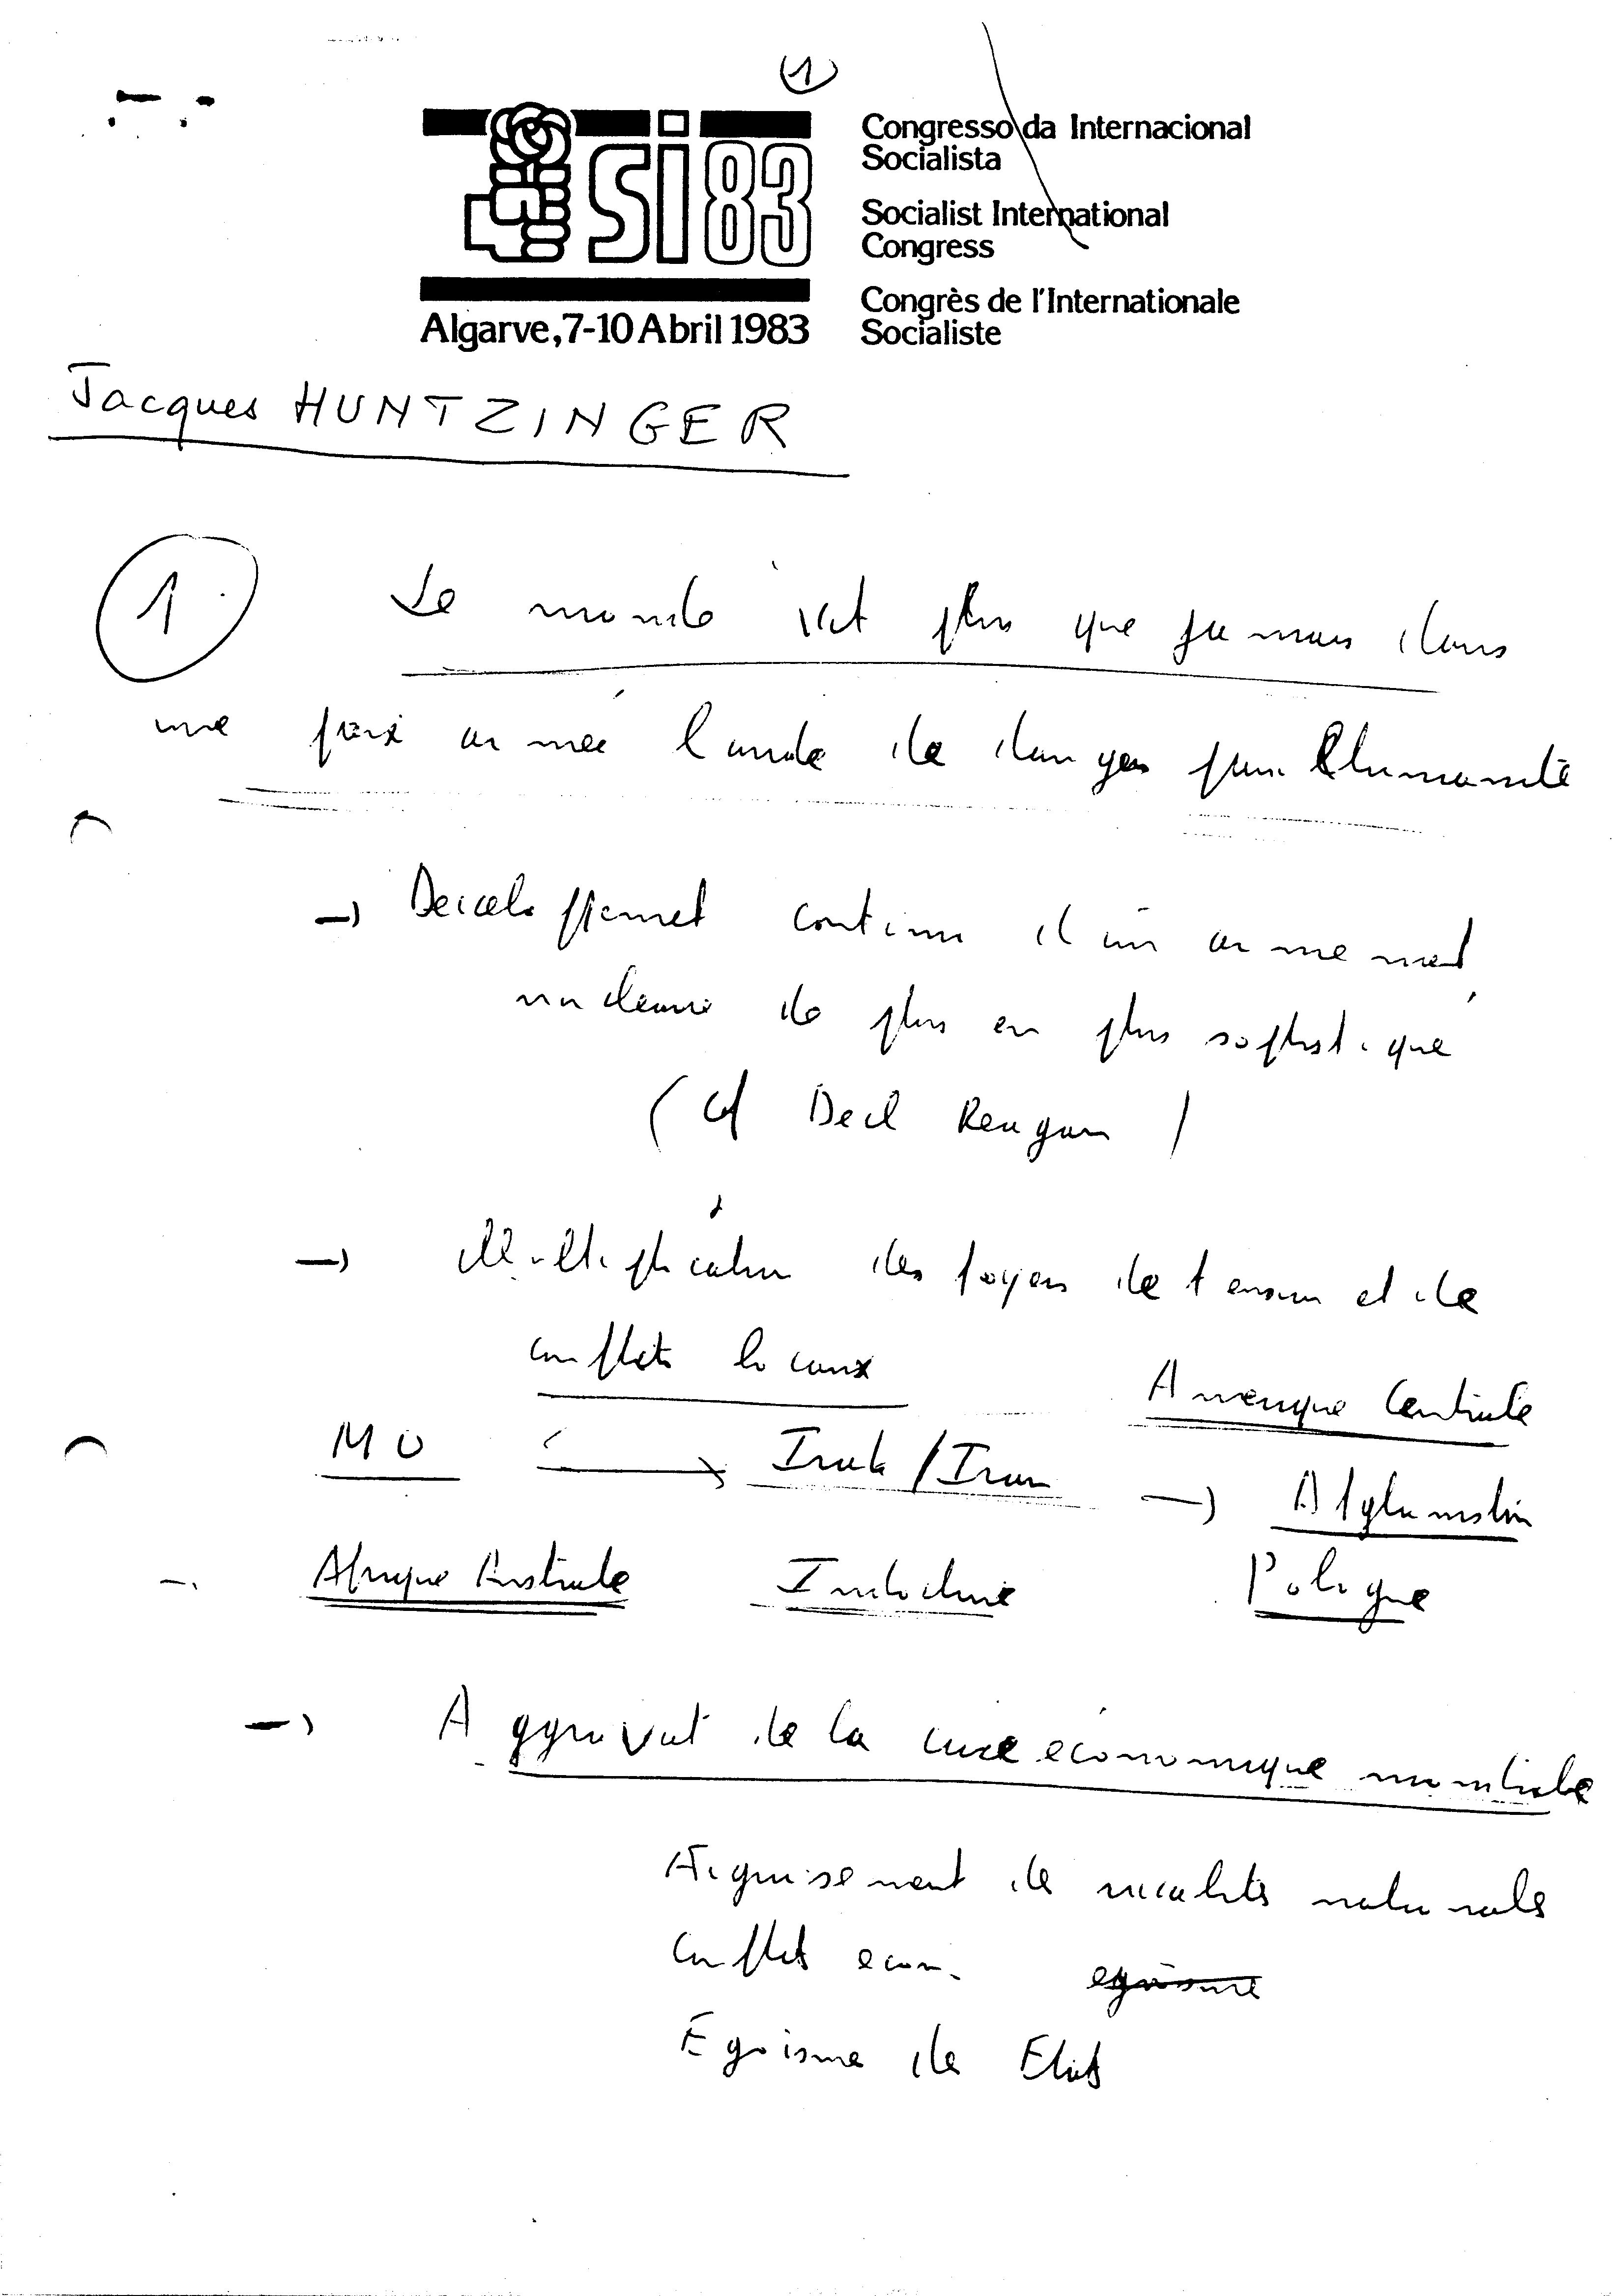 (1)
SI83
Algarve, 7-10 Abril 1983
Congresso da Internacional
Socialista
Socialist International
Congress
Congrès de l'Internationale
Socialiste
Jacques HUNTZINGER
1 Le monde vit plus que jamais dans
une paix armée lourde de dangers pour l'humanité
→ Développement continu d'un armement
nucléaire de plus en plus sophistiqué
(Cf Decl Reagan)
→ Multiplication des foyers de tension et de
conflits locaux
Amerique Centrale
MO ← → Irak / Iran → Afghanistan
Afrique Australe Indochine Pologne
→ Aggravat de la crise économique mondiale
Aiguisement des rivalités nationales
Conflits econ. egoisme
Egoisme des Etats